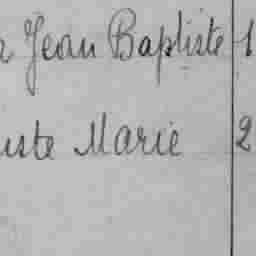 Jean Baptiste 1
uste Marie 2